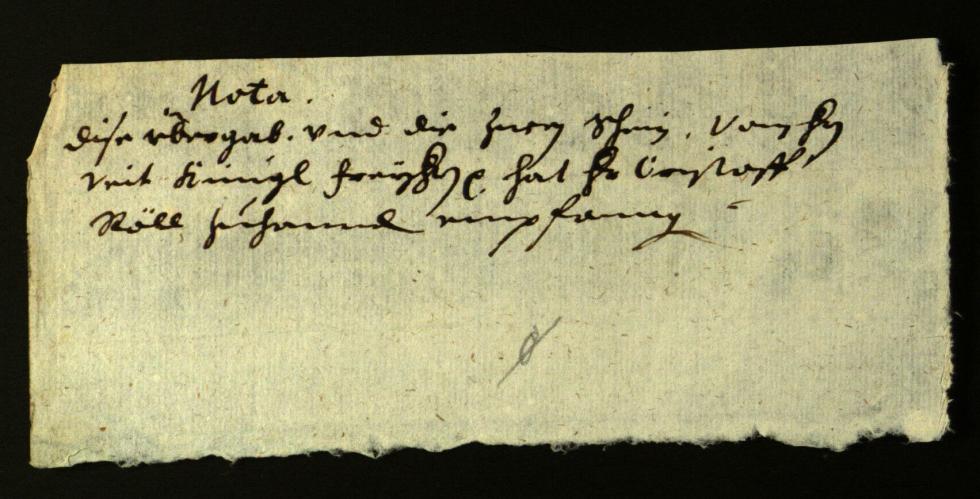 Nota.
dise übergab. vnd die zween schein, von hn
Veit Künigl freyhn ꝛc. hat hr Cristoff
Röll zuhannd empfanng